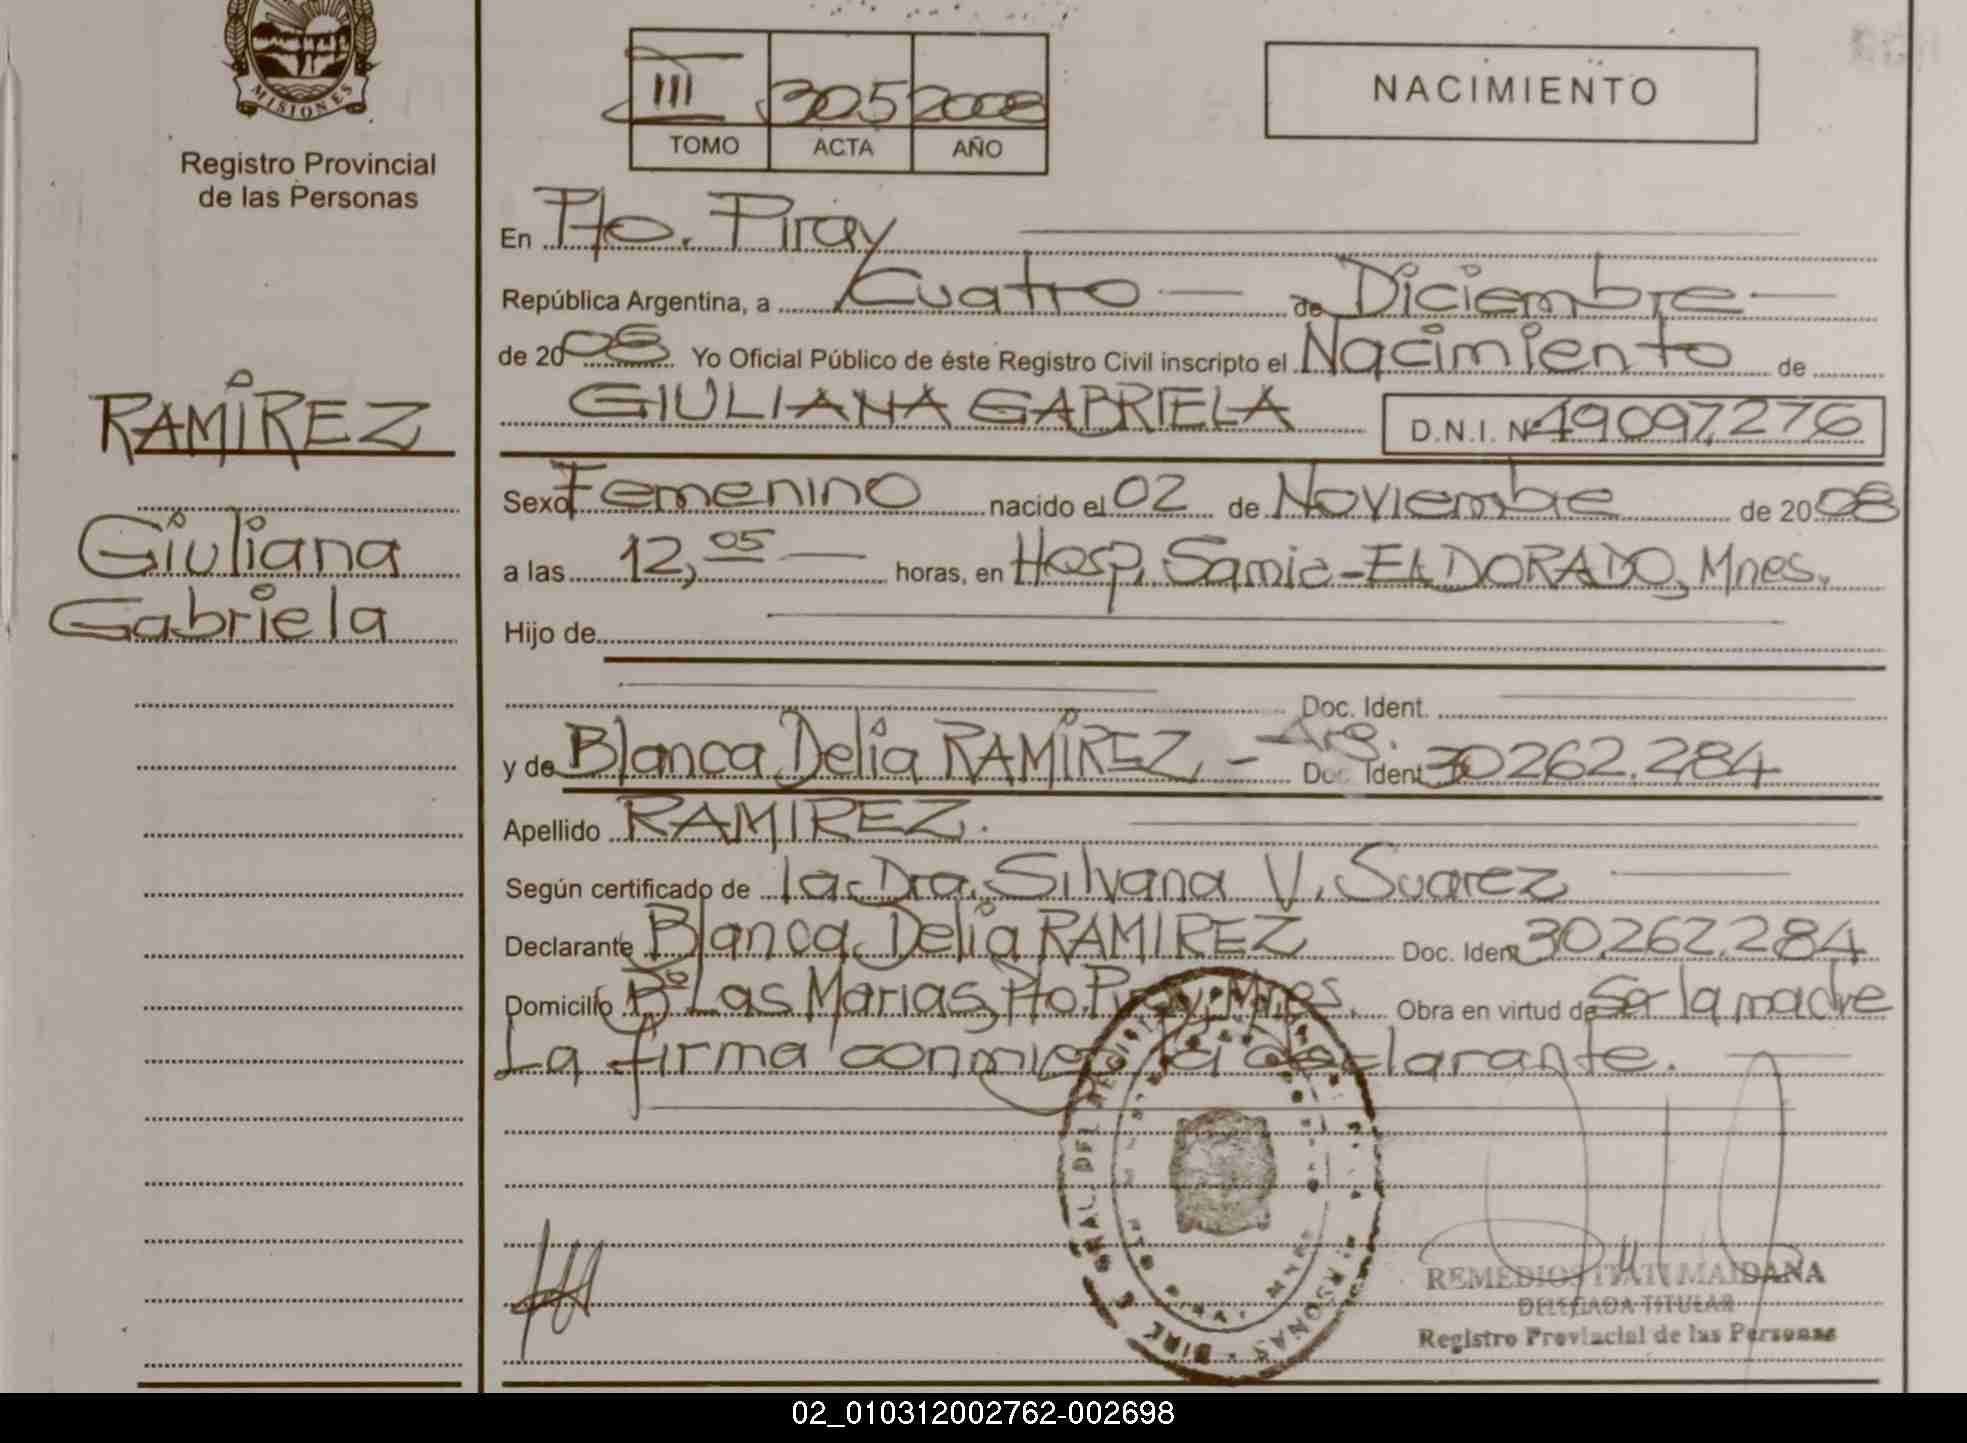 MISIONES
Registro Provincial
de las Personas
RAMÍREZ
Giuliana
Gabriela
III 305 2008
TOMO ACTA AÑO
NACIMIENTO
En Pto. Piray
República Argentina, a Cuatro de Diciembre
de 2008 Yo Oficial Público de éste Registro Civil inscripto el Nacimiento de
GIULIANA GABRIELA D.N.I. Nº 49097.276
Sexo Femenino nacido el 02 de Noviembre de 2008
a las 12,05 horas, en Hosp. Samic - ELDORADO, Mnes.
Hijo de
Doc. Ident.
y de Blanca Delia RAMÍREZ - Arg. Doc. Ident 30262.284
Apellido RAMIREZ.
Según certificado de la Dra. Silvana V. Suarez
Declarante Blanca Delia RAMIREZ Doc. Ident 30.262.284
Domicilio Bº Las Marias, Pto. Piray, Mnes. Obra en virtud de Ser la madre
La firma conmigo la declarante.
REMEDIOS ITATI MAIDANA
DELEGADA TITULAR
Registro Provincial de las Personas
02_010312002762-002698